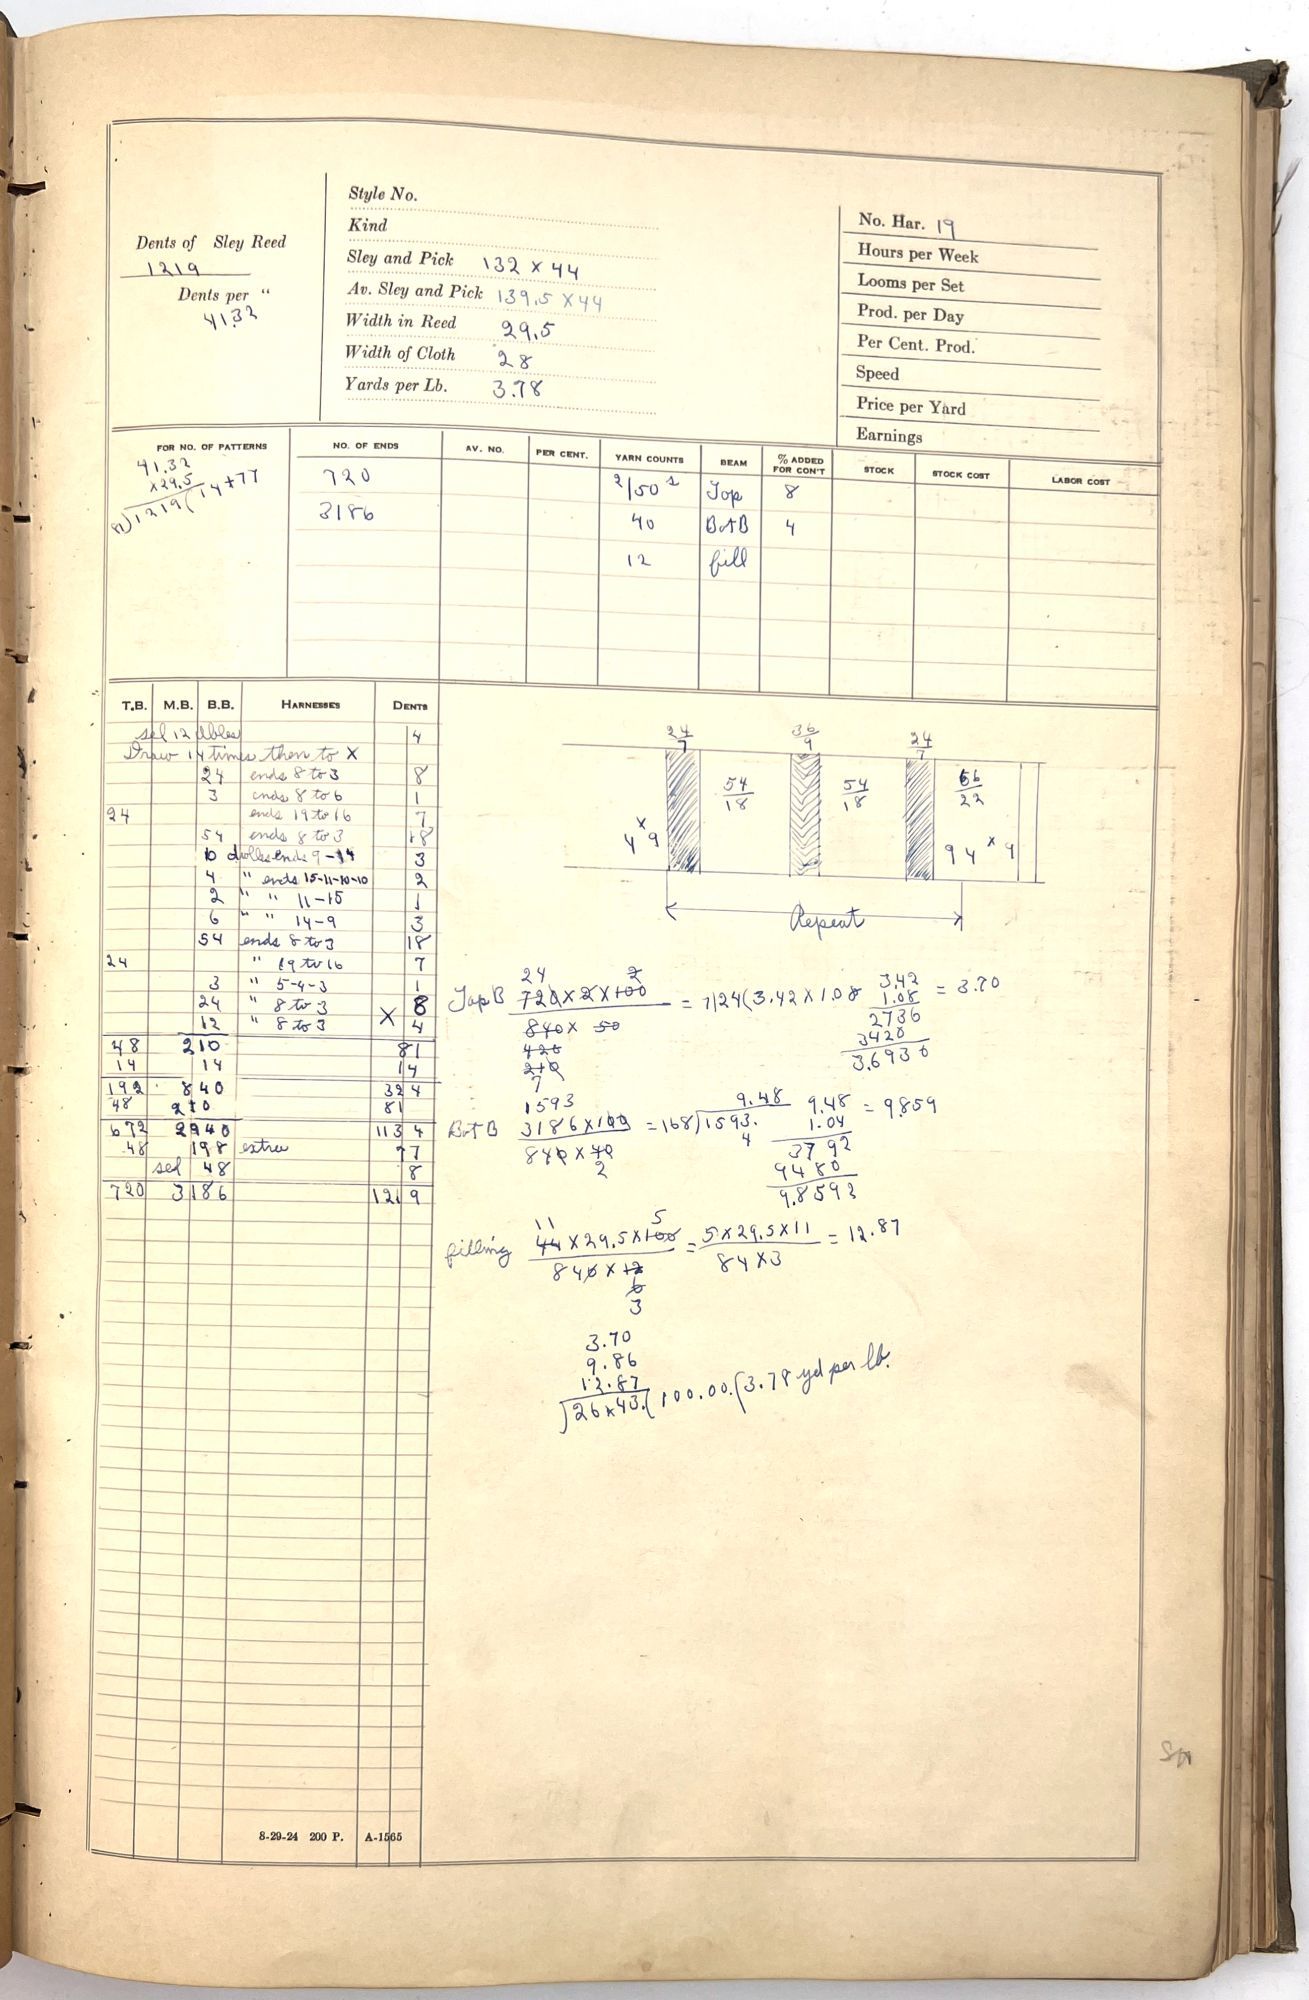 Dents of Sley Reed
1219
Dents per "
41.32
Style No.
Kind
Sley and Pick 132 x 44
Av. Sley and Pick 139.5 x 44
Width in Reed 29.5
Width of Cloth 28
Yards per Lb. 3.78
No. Har. 19
Hours per Week
Looms per Set
Prod. per Day
Per Cent. Prod.
Speed
Price per Yard
Earnings
FOR NO. OF PATTERNS NO. OF ENDS AV. NO. PER CENT. YARN COUNTS BEAM % ADDED FOR CON'T STOCK STOCK COST LABOR COST
41.32
x29.5
81)1219(14+77
720 2/50s Top 8
3186 40 Bot B 4
12 fill
T.B. M.B. B.B. HARNESSES DENTS
sel 12 dbles 4
Draw 14 times then to X
24 ends 8 to 3 8
3 ends 8 to 6 1
24 ends 19 to 16 7
54 ends 8 to 3 18
10 dbles ends 9-14 3
4 " ends 15-11-10-10 2
2 " " 11-15 1
6 " " 14-9 3
54 ends 8 to 3 18
24 " 19 to 16 7
3 " 5-4-3 1
24 " 8 to 3 X 8
12 " 8 to 3 4
48 210 81
14 14 14
192 840 324
48 210 81
672 2940 1134
48 198 extra 77
sel 48 8
720 3186 1219
24/7 36/9 24/7
54/18 54/18 66/22
4 x 9 94 x 9
Repeat
24 2
Top B 720x2x100 = 7/24(3.42 x 1.08 3.42 = 3.70
840 x 50 1.08
420 2736
210 3420
7 3.6936
1593 9.48 9.48 = 9.859
Bot B 3186x100 = 168)1593. 1.04
840 x 40 4 3792
2 9480
9.8592
11 5
filling 44 x 29.5 x 100 = 5 x 29.5 x 11 = 12.87
840 x 12 84 x 3
6
3
3.70
9.86
12.87
26x43.(100.00.(3.78 yd per lb.
8-29-24 200 P. A-1565